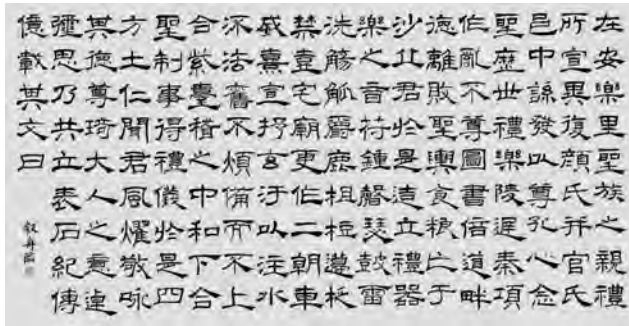 在安樂里聖族之親禮
所宣異復顏氏并官氏
邑中繇發以尊孔心念
聖歷世禮樂陵遲秦項
作亂不尊圖書倍道畔
德離敗聖輿食糧亡于
沙丘君於是造立禮器
樂之音符鍾磬瑟鼓雷
洗觴觚爵鹿柤梪籩柉
禁壺宅廟更作二朝車
威熹宣抒玄汙以注水
流法舊不煩備而不上
合紫臺稽之中和下合
聖制事得禮儀於是四
方士仁聞君風燿敬咏
其德尊琦大人之意逴
彌思乃共立表石紀傳
億載其文曰